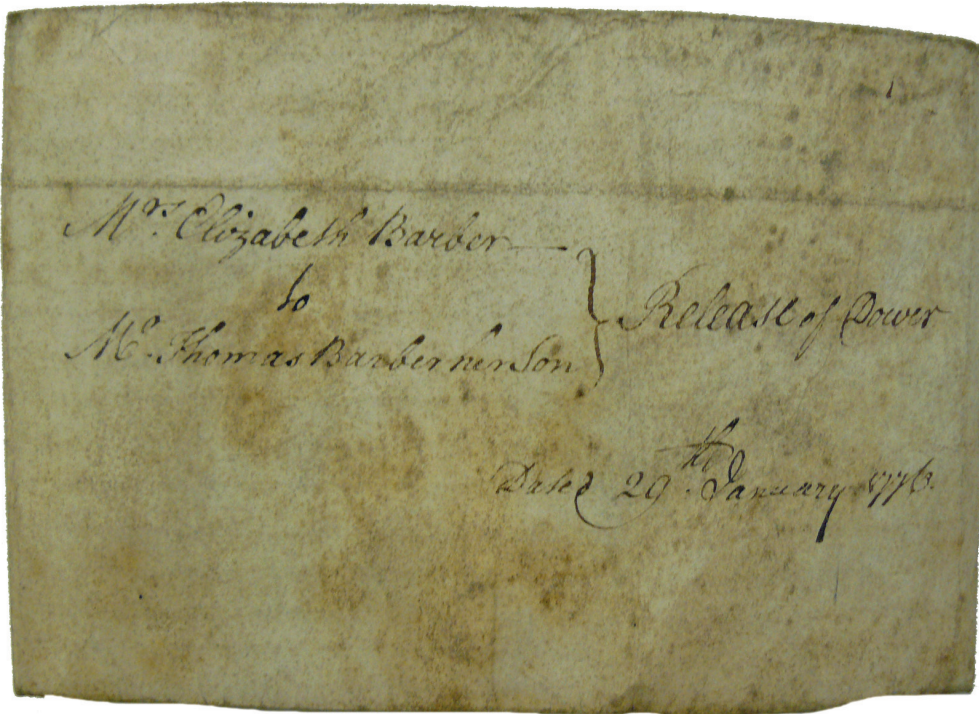 Mrs. Elizabeth Barber
to
Mr. Thomas Barber her Son
Release of Dower
Dated 29th. January